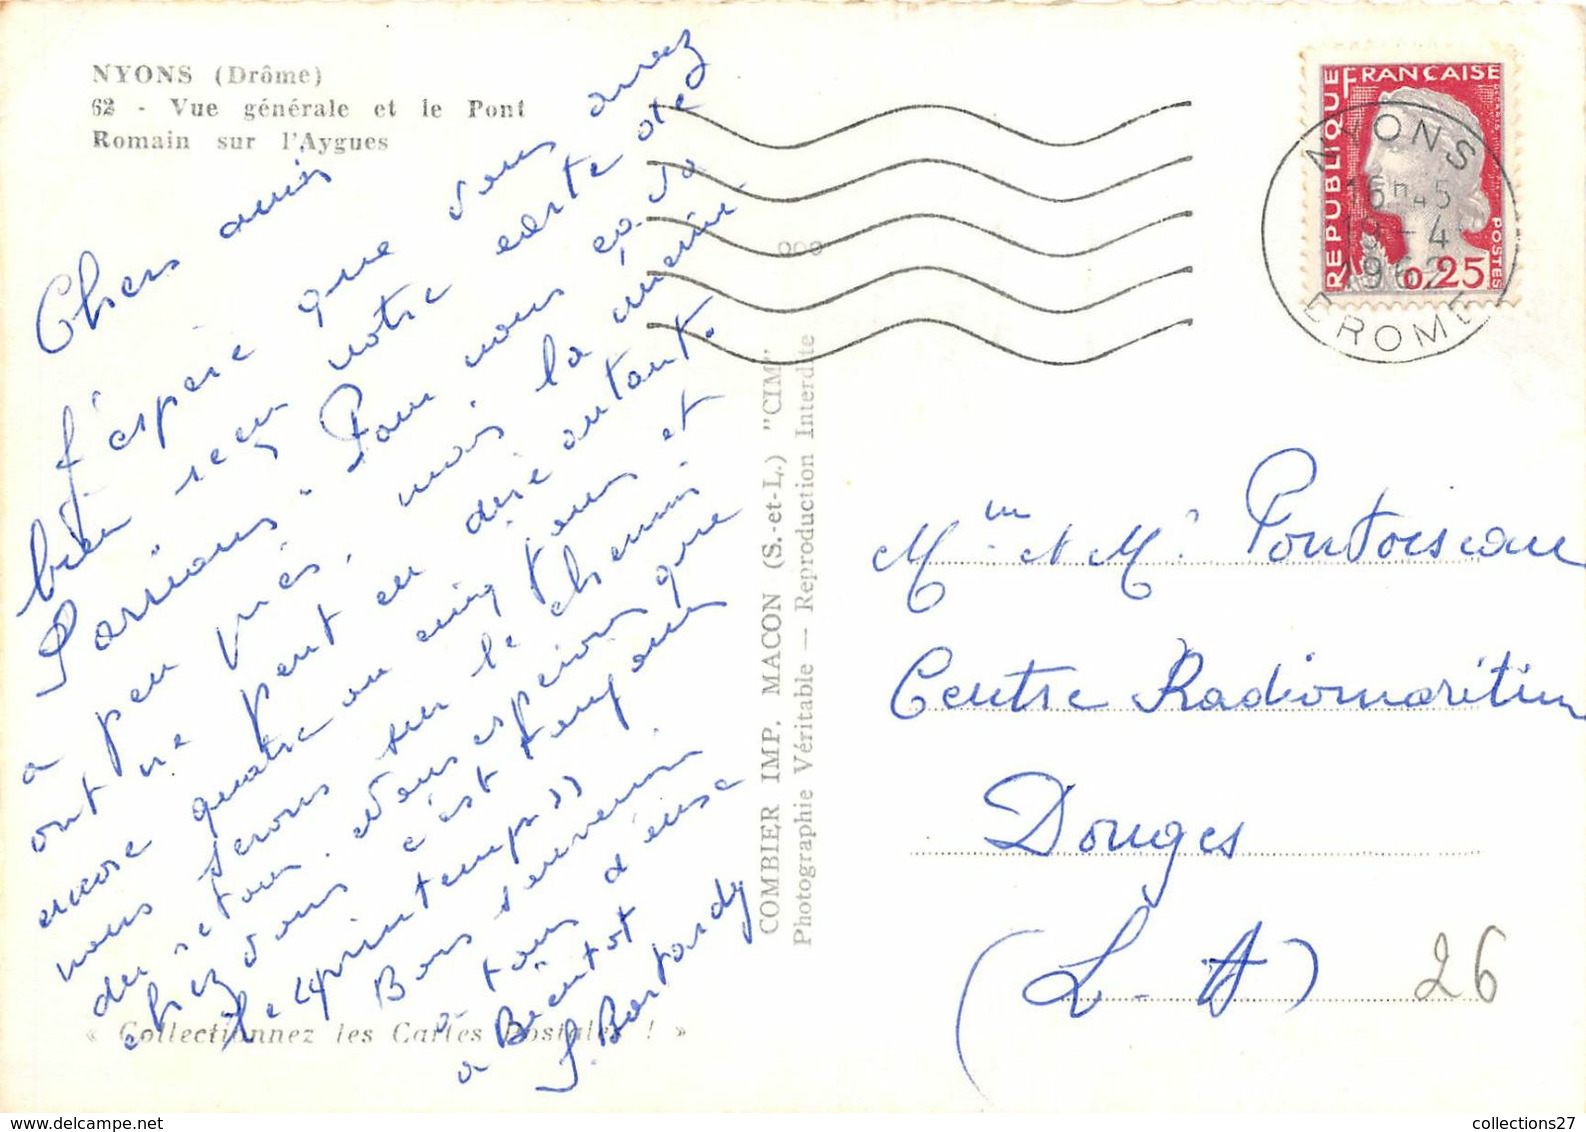 NYONS (Drôme)
62 - Vue générale et le Pont
Romain sur l'Aygues
Chers amis
J'espère que vous avez
bien reçu notre carte de
Sarrians. Pour nous ça va
à peu près, moi, la mienne
ont ne peut en dire autant.
encore quatre ou cinq jours et
nous serons sur le chemin
du retour. Nous espérons que
chez vous c'est toujours
le "printemps"
Bons souvenirs
à tous deux
a Bientot
COMBIER IMP. MACON (S.-et-L.) "CIM"
Photographie Véritable — Reproduction Interdite
« Collectionnez les Cartes Postales ! »
REPUBLIQUE FRANÇAISE
POSTES
0,25
NYONS
16H45
19-4
1962
DROME
Mme et Mr Pontoiseau
Centre Radiomaritim
Donges
(L-A)
26
collections27